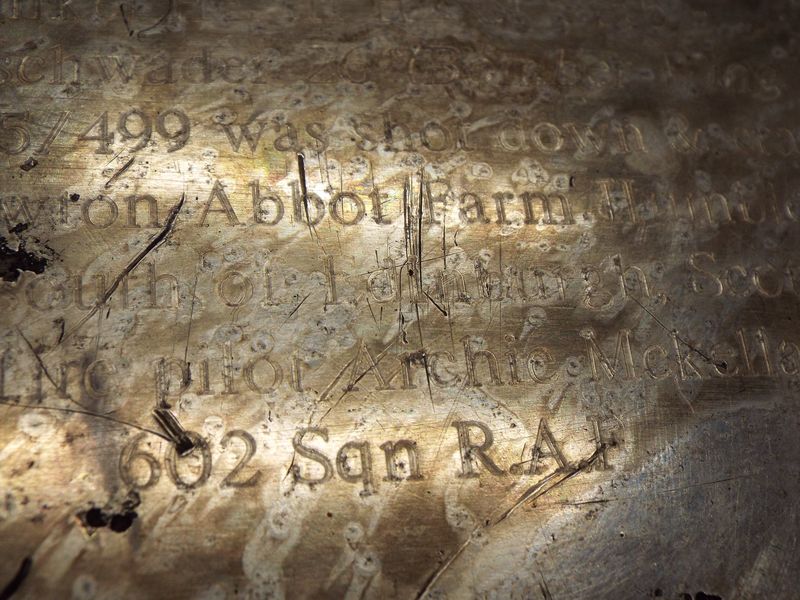 schwader 26 Bomber Wing
5/499 was shot down &
wton Abbot Farm. Humbie
south of Edinburgh, Scot
fire pilot Archie Mckella
602 Sqn R.A.F